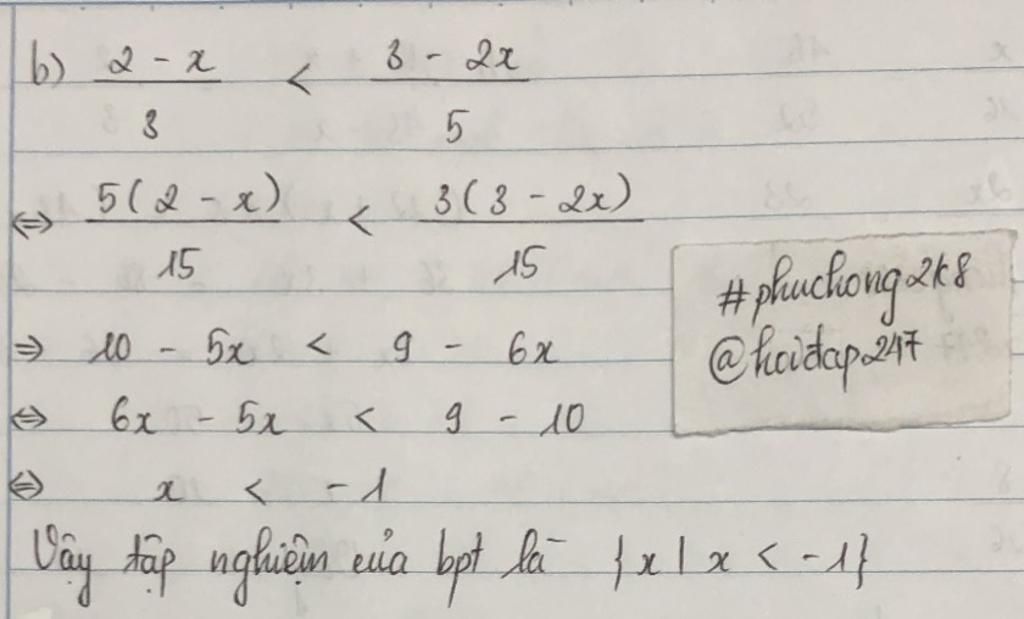 b) (2 - x)/3 < (3 - 2x)/5
⇔ 5(2 - x)/15 < 3(3 - 2x)/15
⇒ 10 - 5x < 9 - 6x
⇔ 6x - 5x < 9 - 10
⇔ x < -1
Vậy tập nghiệm của bpt là {x | x < -1}
#phuchong2k8
@hoidap247